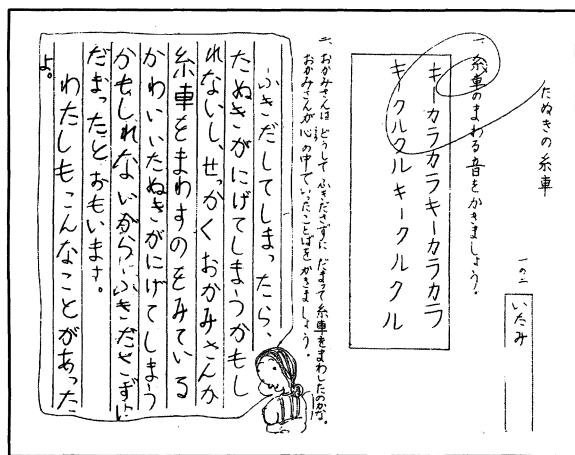 たぬきの糸車
一の二
いたみ
一、糸車のまわる音をかきましょう。
キーカラカラキーカラカラ
キークルクルキークルクル
二、おかみさんはどうしてふきださずに、だまって糸車をまわしたのかな。
おかみさんが心の中でいったことばをかきましょう。
ふきだしてしまったら、
たぬきがにげてしまうかもし
れないし、せっかくおかみさんが
糸車をまわすのをみている
かわいいたぬきがにげてしまう
かもしれないから、ふきださずに
だまったとおもいます。
わたしもこんなことがあった
よ。